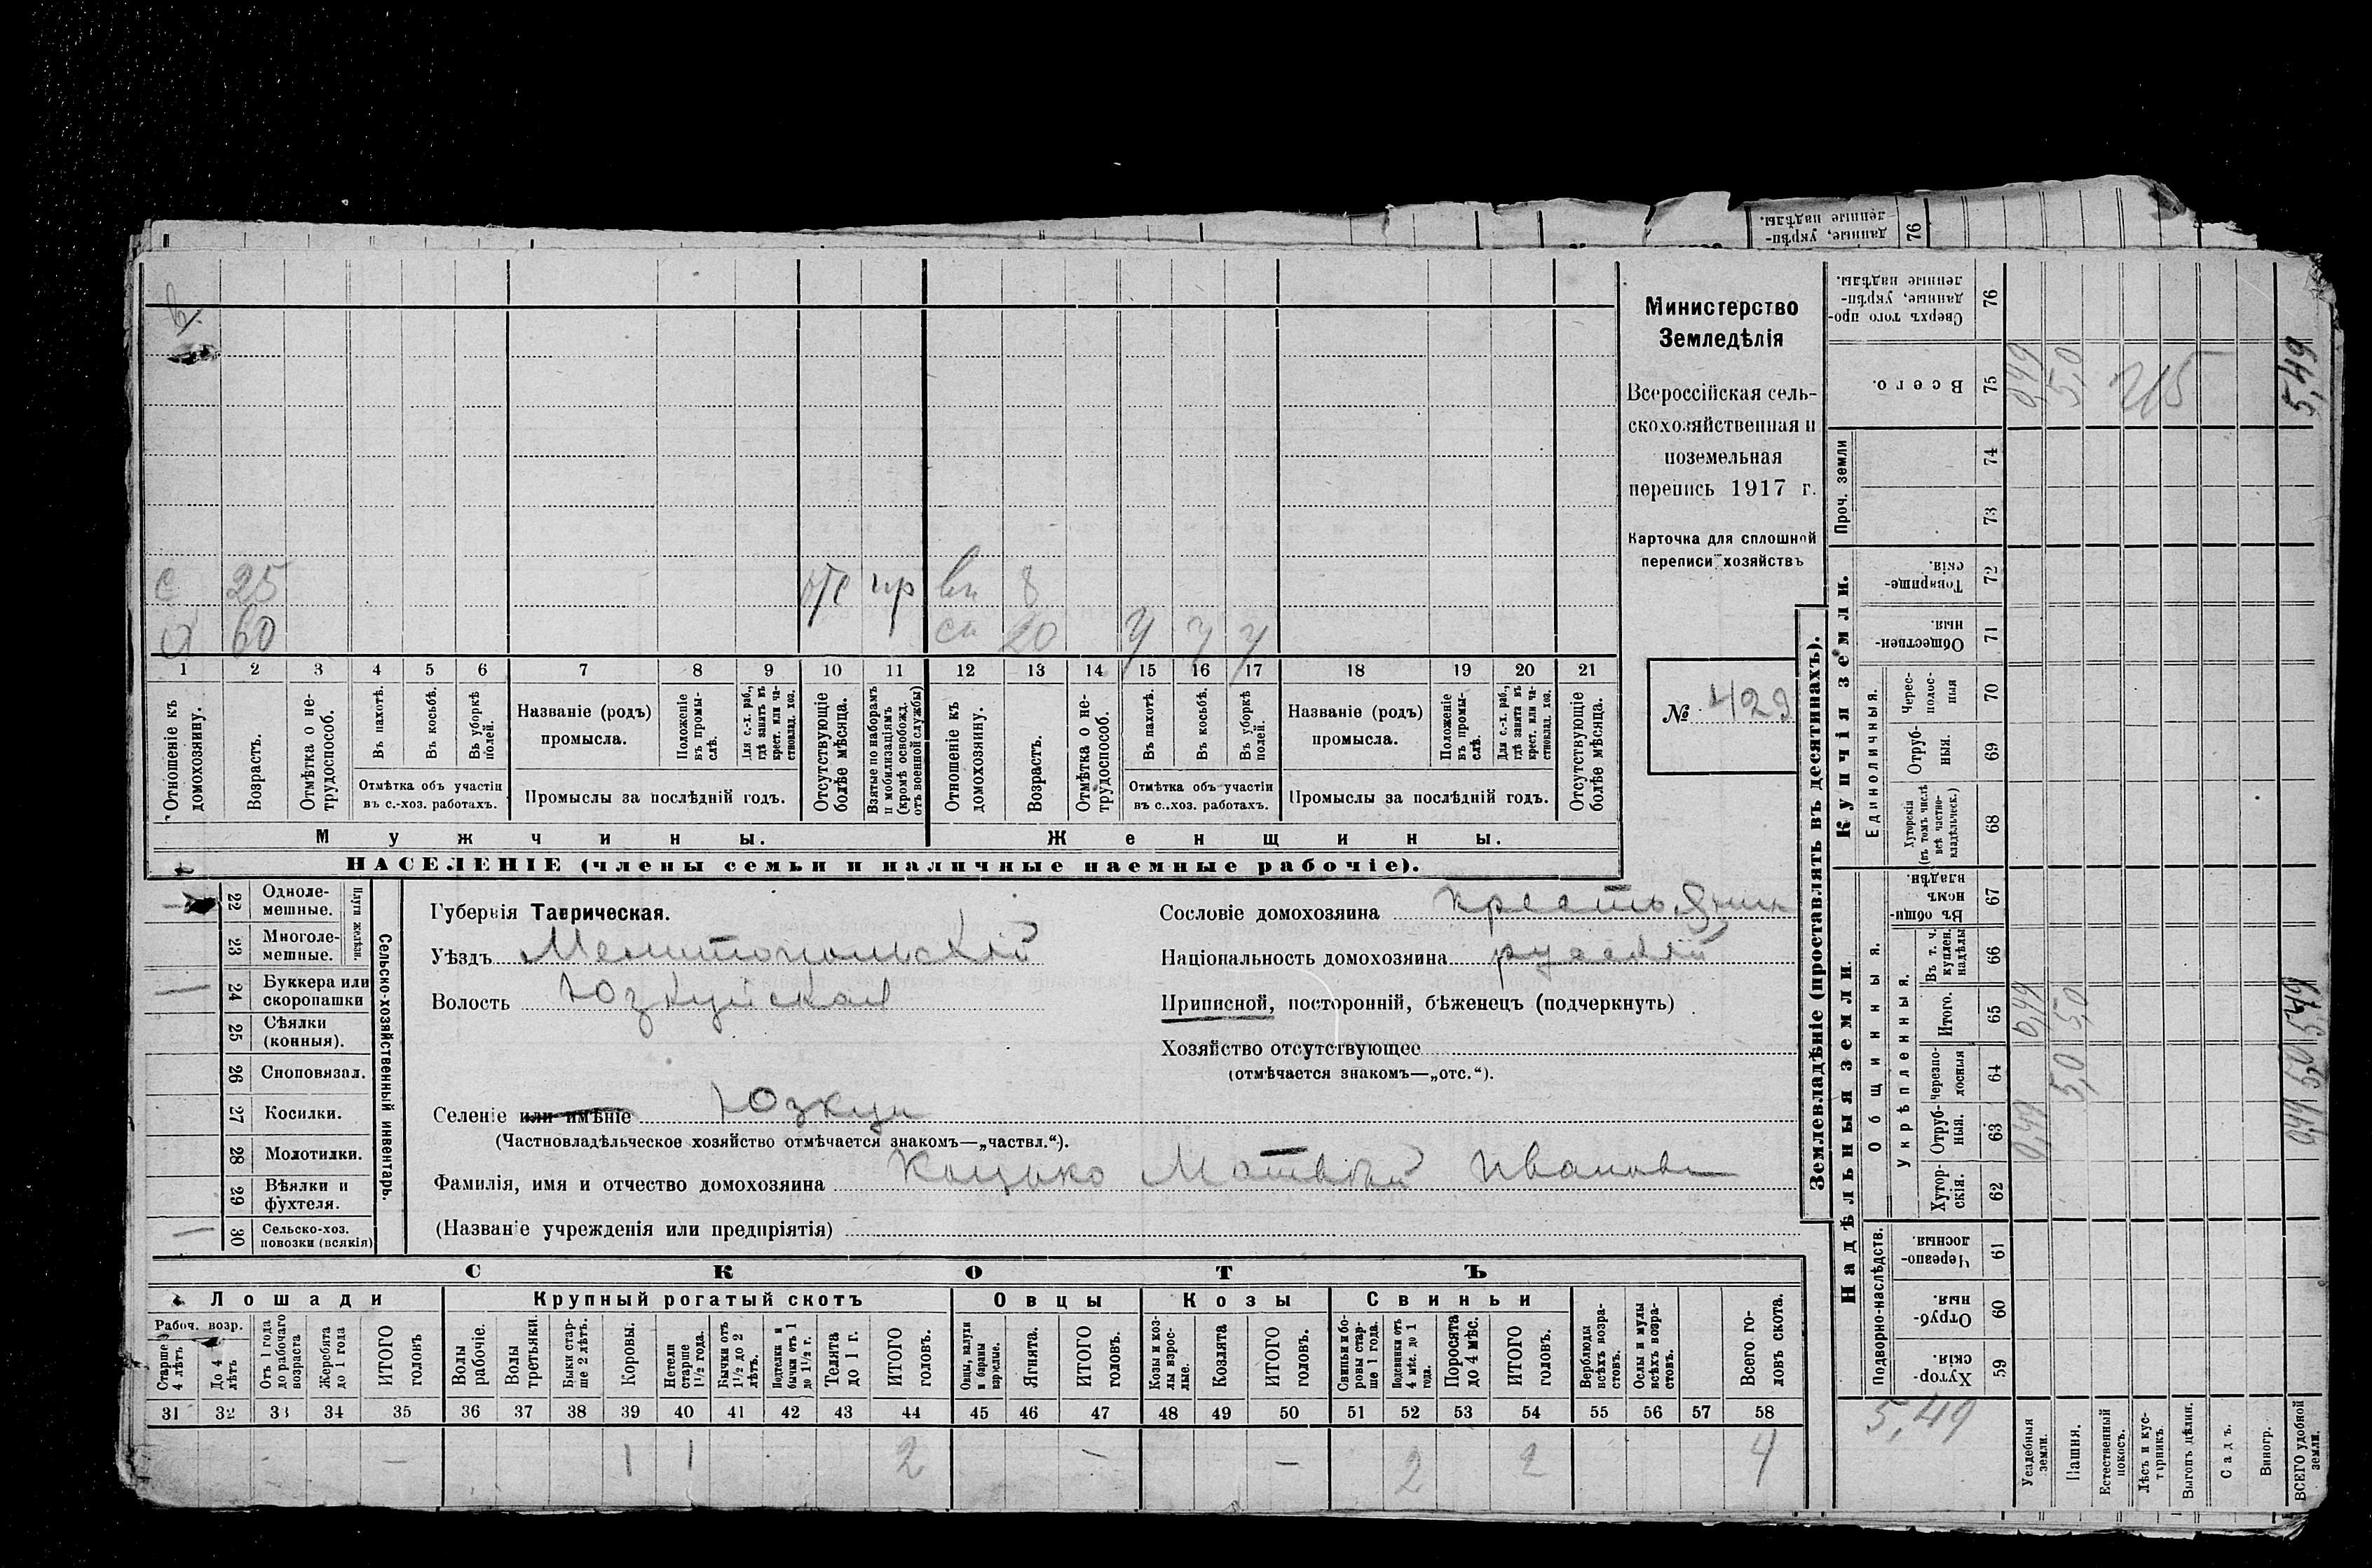 ленные надѣлы.
данные, укрѣп-
76
Министерство
Земледѣлія
Всероссійская сель-
скохозяйственная и
поземельная
перепись 1917 г.
Карточка для сплошной
переписи хозяйствъ
№ 429
с 25 отс пр вн 8
д 60 сн 20 у у у
1 2 3 4 5 6 7 8 9 10 11 12 13 14 15 16 17 18 19 20 21
Отношеніе къ домохозяину.
Возрастъ.
Отмѣтка о не-трудоспособ.
Въ пахотѣ.
Въ косьбѣ.
Въ уборкѣ полей.
Отмѣтка объ участіи въ с.-хоз. работахъ.
Названіе (родъ) промысла.
Положеніе въ промы-слѣ.
Для с.-х. раб., гдѣ занятъ въ крест. или ча-стновлад. хоз.
Промыслы за послѣдній годъ.
Отсутствующіе болѣе мѣсяца.
Взятые по наборамъ и мобилизаціямъ (кромѣ освобожд. отъ военной службы)
Отношеніе къ домохозяину.
Возрастъ.
Отмѣтка о не-трудоспособ.
Въ пахотѣ.
Въ косьбѣ.
Въ уборкѣ полей.
Отмѣтка объ участіи въ с.-хоз. работахъ.
Названіе (родъ) промысла.
Положеніе въ промы-слѣ.
Для с.-х. раб., гдѣ занята въ крест. или ча-стновлад. хоз.
Промыслы за послѣдній годъ.
Отсутствующіе болѣе мѣсяца.
Мужчины. Женщины.
НАСЕЛЕНІЕ (члены семьи и наличные наемные рабочіе).
Сельско-хозяйственный инвентарь.
Плуги желѣзн.
22 Одноле-мешные.
23 Многоле-мешные.
— 24 Буккера или скоропашки
25 Сѣялки (конныя).
26 Сноповязал.
27 Косилки.
28 Молотилки.
29 Вѣялки и фухтеля.
— 30 Сельско-хоз. повозки (всякія)
Губернія Таврическая.
Уѣздъ Мелитопольскій
Волость Юзкуйская
Селеніе или имѣніе Юзкуи
(Частновладѣльческое хозяйство отмѣчается знакомъ—„частвл.“).
Фамилія, имя и отчество домохозяина Коцько Матвѣй Иванови
(Названіе учрежденія или предпріятія)
Сословіе домохозяина крестьянин
Національность домохозяина русскій
Приписной, посторонній, бѣженецъ (подчеркнуть)
Хозяйство отсутствующее
(отмѣчается знакомъ—„отс.“).
СКОТЪ
Лошади Крупный рогатый скотъ Овцы Козы Свиньи
Рабоч. возр.
Старше 4 лѣтъ
До 4 лѣтъ
Отъ 1 года до рабочаго возраста
Жеребята до 1 года
ИТОГО головъ
Волы рабочіе.
Волы третьяки.
Быки стар-ше 2 лѣтъ.
Коровы.
Нетели старше 1½ года.
Бычки отъ 1½ до 2 лѣтъ.
Подтелки и бычки отъ 1 до 1½ г.
Телята до 1 г.
ИТОГО головъ.
Овцы, валухи и бараны взрослые.
Ягнята.
ИТОГО головъ.
Козы и коз-лы взрос-лые.
Козлята
ИТОГО головъ.
Свиньи и бо-ровы стар-ше 1 года.
Подсвинки отъ 4 мѣс. до 1 года.
Поросята до 4 мѣс.
ИТОГО головъ.
Верблюды всѣхъ возра-стовъ.
Ослы и мулы всѣхъ возра-стовъ.
Всего го-ловъ скота.
31 32 33 34 35 36 37 38 39 40 41 42 43 44 45 46 47 48 49 50 51 52 53 54 55 56 57 58
— 1 1 2 — — 2 2 4
Землевладѣніе (проставлять въ десятинахъ).
Надѣльныя земли.
Купчія земли.
Проч. земли
Подворно-наслѣдств.
Общинныя.
Укрѣпленныя.
Единоличныя.
Хутор-скія. 59
Отруб-ныя. 60
Черезпо-лосныя. 61
Хутор-скія. 62
Отруб-ныя. 63
черезпо-лосныя 64
Итого. 65
Въ т. ч. куплен. надѣлы 66
Въ общи-номъ владѣн. 67
Хуторскія (въ томъ числѣ всѣ частно-владѣльческ.) 68
Отруб-ныя. 69
Черес-полос-ныя 70
Обществен-ныя. 71
Товарище-скія. 72
73
74
Всего. 75
Сверхъ того про-данные, укрѣп-ленные надѣлы. 76
5,49
Усадебныя земли. 0,49 0,49 0,49
Пашня. 5,0 5,0 5,0
Естественный покосъ.
Лѣсъ и кус-тарникъ.
Выгонъ цѣлин.
Садъ.
Виногр.
ВСЕГО удобной земли. 0,49 5,0 5,49 5,49
215